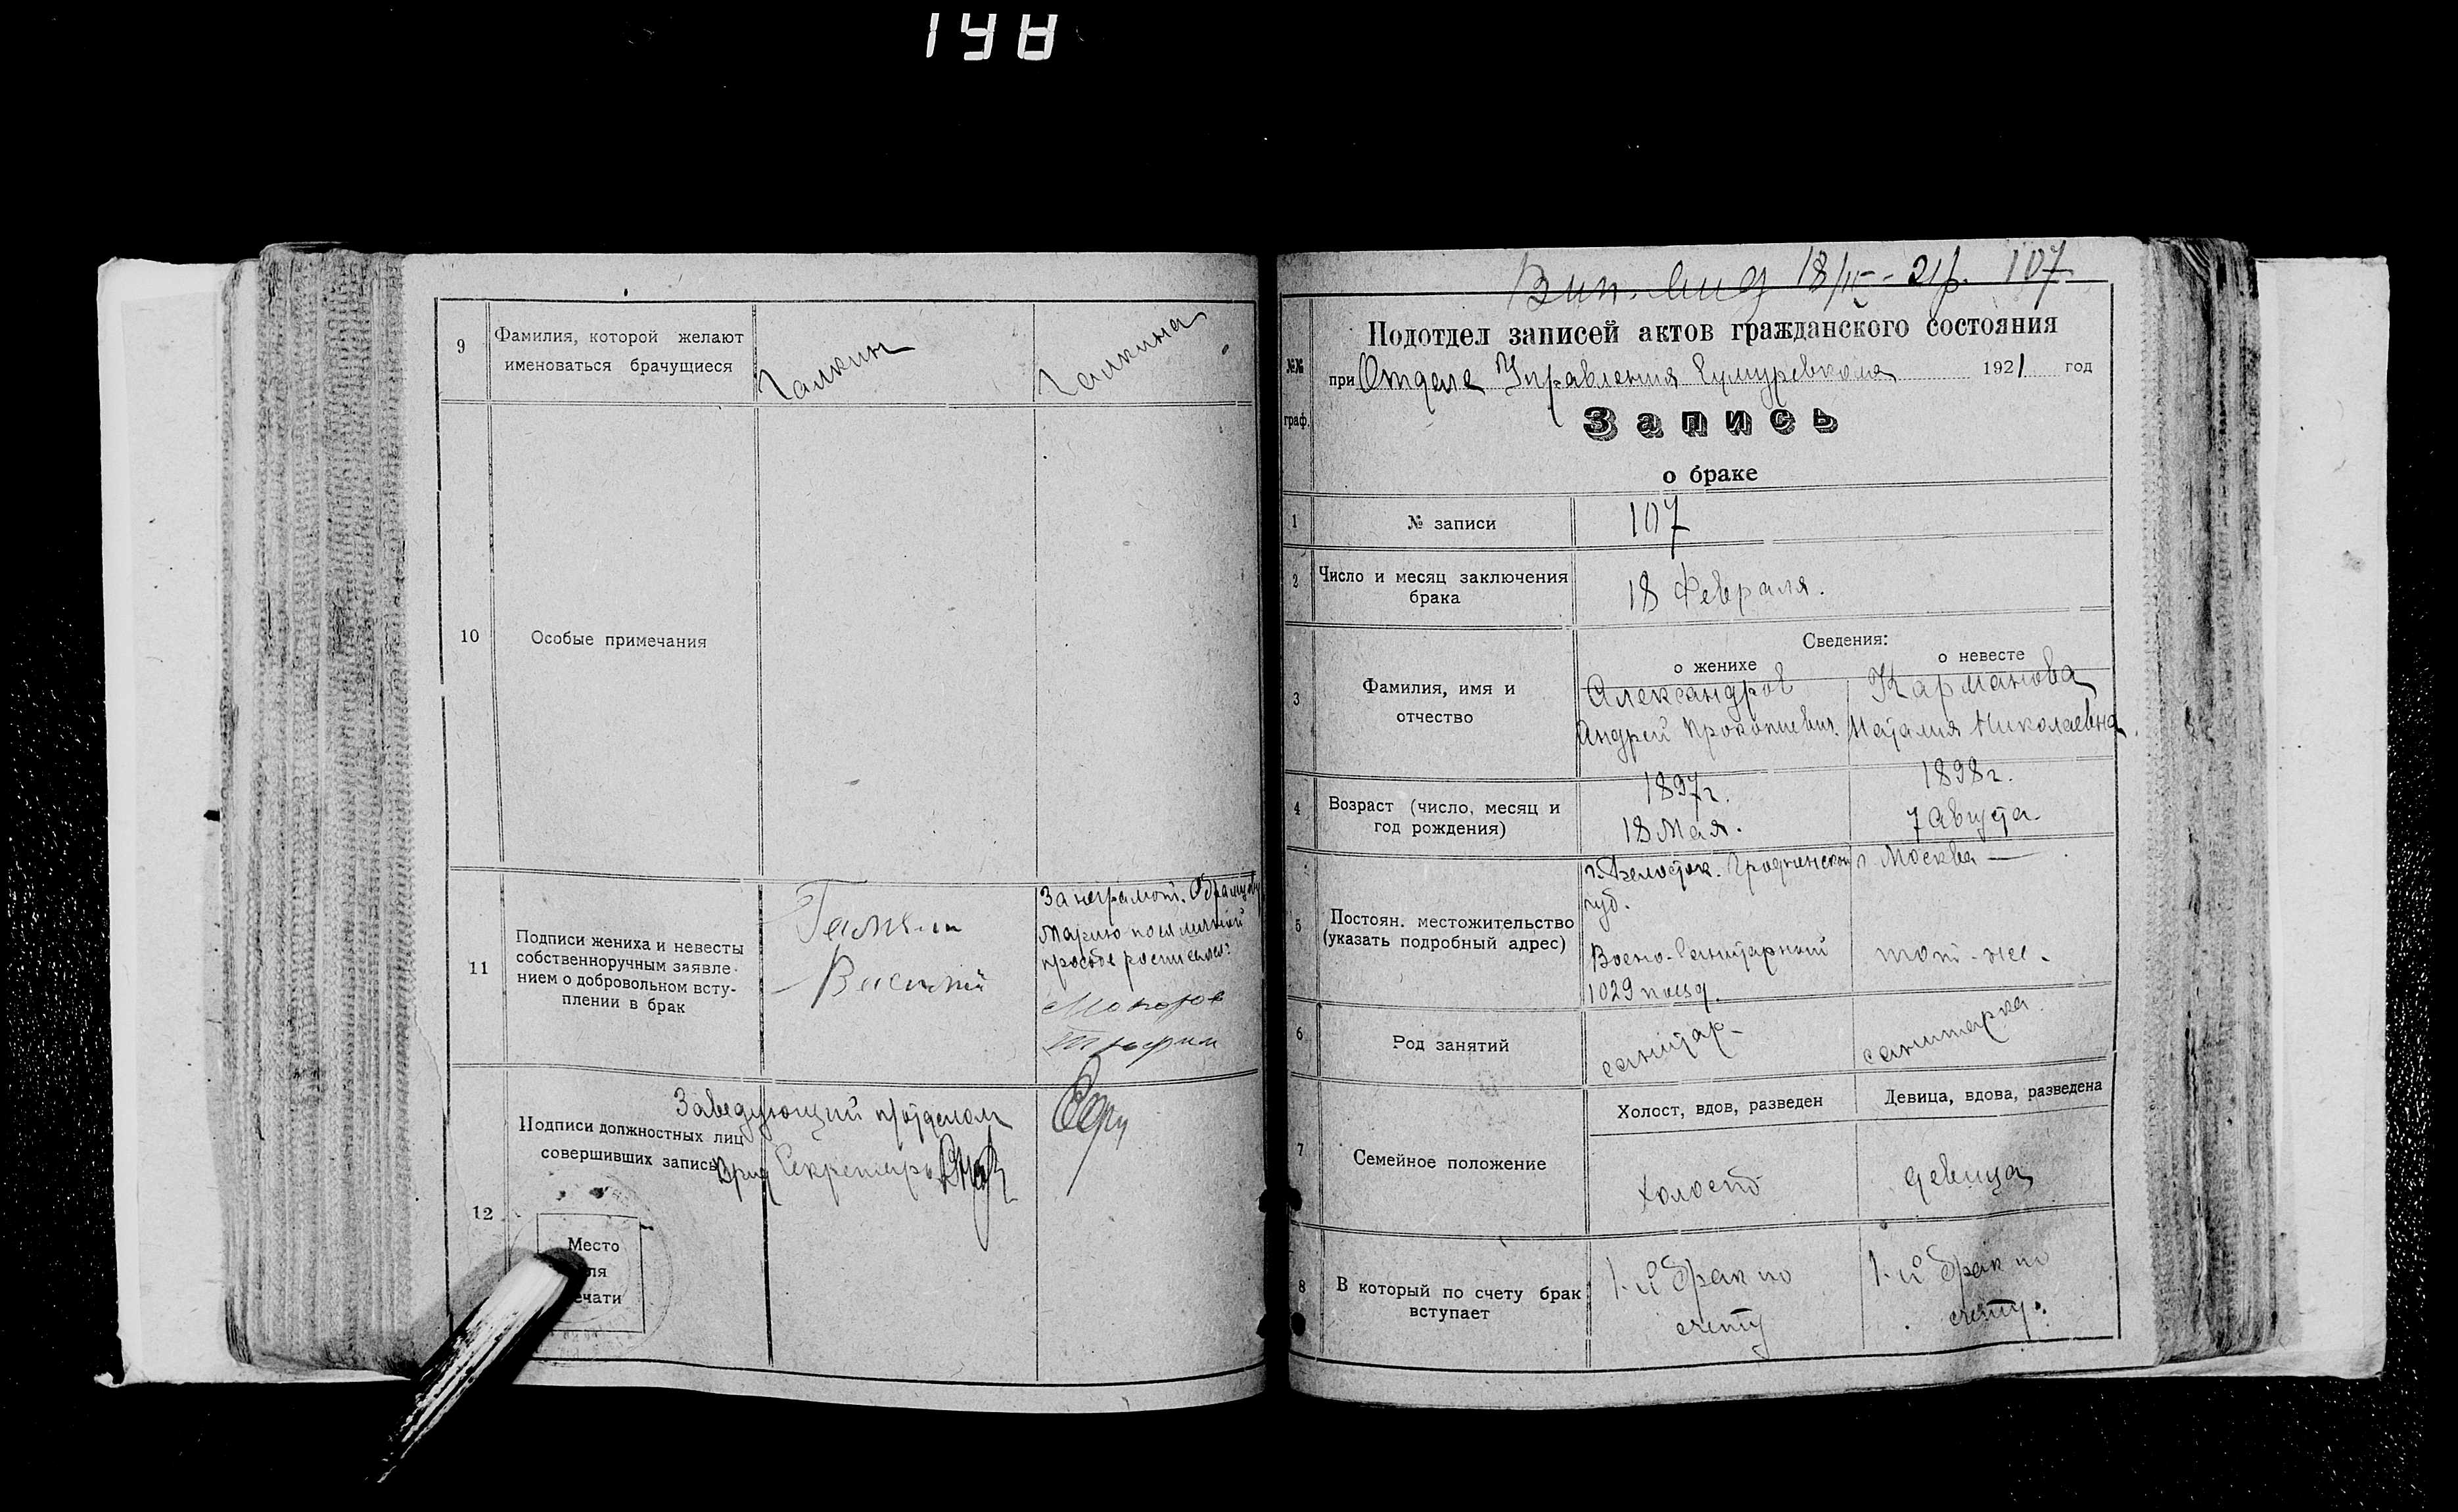 9
Фамилия, которой желают
именоваться брачущиеся
Галкин
Галкина
10
Особые примечания
11
Подписи жениха и невесты
собственноручным заявле-
нием о добровольном всту-
плении в брак
Галкин
Василий
За неграмот.
Марию по ея личной
просьбе
12
Подписи должностных лиц
совершивших запись
Заведующий п/отделом
Врид Секретарь
Место
ля
ечати
18/II-21г. 107
№№
граф.
Подотдел записей актов гражданского состояния
при Отделе Управления 1921 год
Запись
о браке
1
№ записи
107
2
Число и месяц заключения
брака
18 Февраля.
Сведения:
о женихе
о невесте
3
Фамилия, имя и
отчество
Александров
Андрей Прокопиевич
Карманова
Наталия Николаевна.
4
Возраст (число, месяц и
год рождения)
1897г.
18 Мая.
1898г.
7 Августа
5
Постоян. местожительство
(указать подробный адрес)
г. Белосток. Гродненской
губ.
Воено-Санитарный
1029 поезд.
г. Москва —
тот-же.
6
Род занятий
санитар-
санитарка.
7
Семейное положение
Холост, вдов, разведен
Девица, вдова, разведена
холост
девица
8
В который по счету брак
вступает
1-й брак по
счету
1-й брак по
счету.